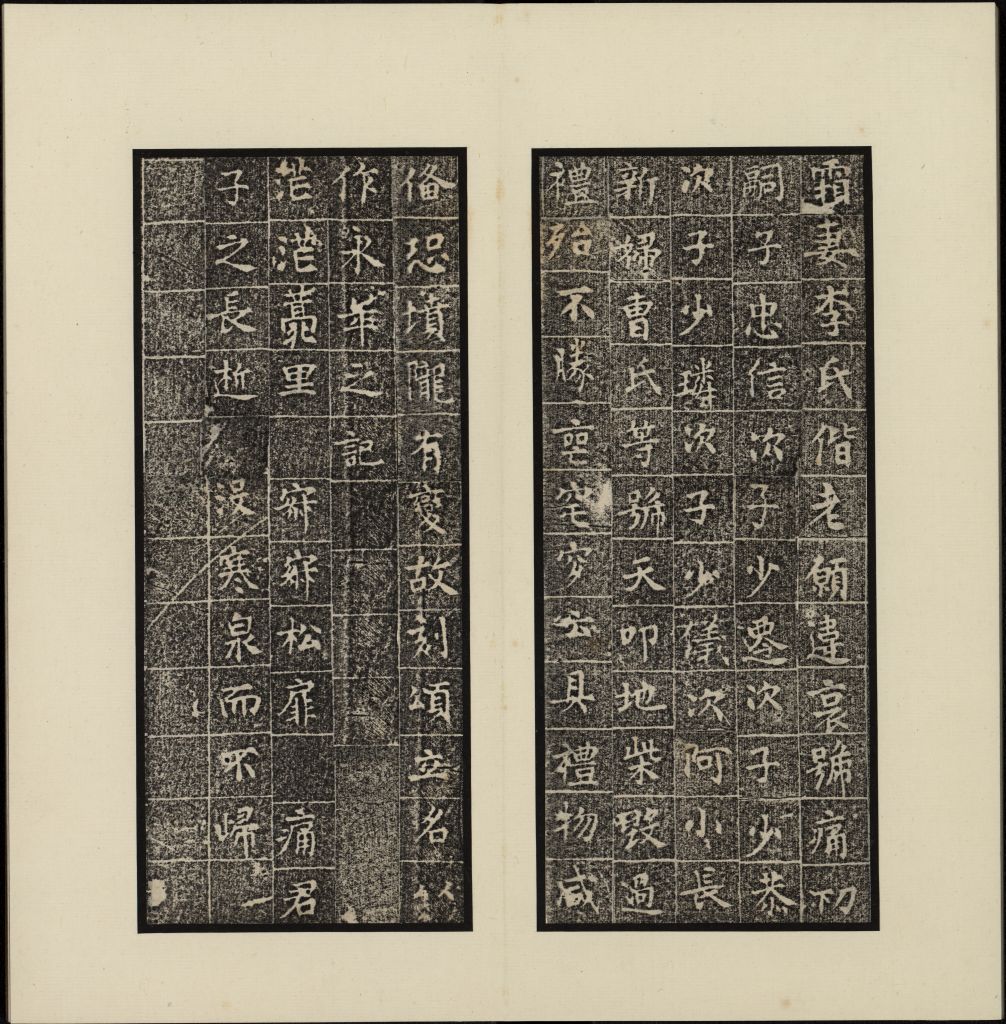 霜妻李氏偕老願違哀號痛切
嗣子忠信次子少遷次子少恭
次子少璘次子少儀次阿小長
新婦曹氏等號天叩地柴毀過
禮殆不勝喪宅穸必具禮物咸
俻恐墳隴有變故刻頌立名以
作永年之記
茫茫蒿里寂寂松扉痛君
子之長逝没寒泉而不歸